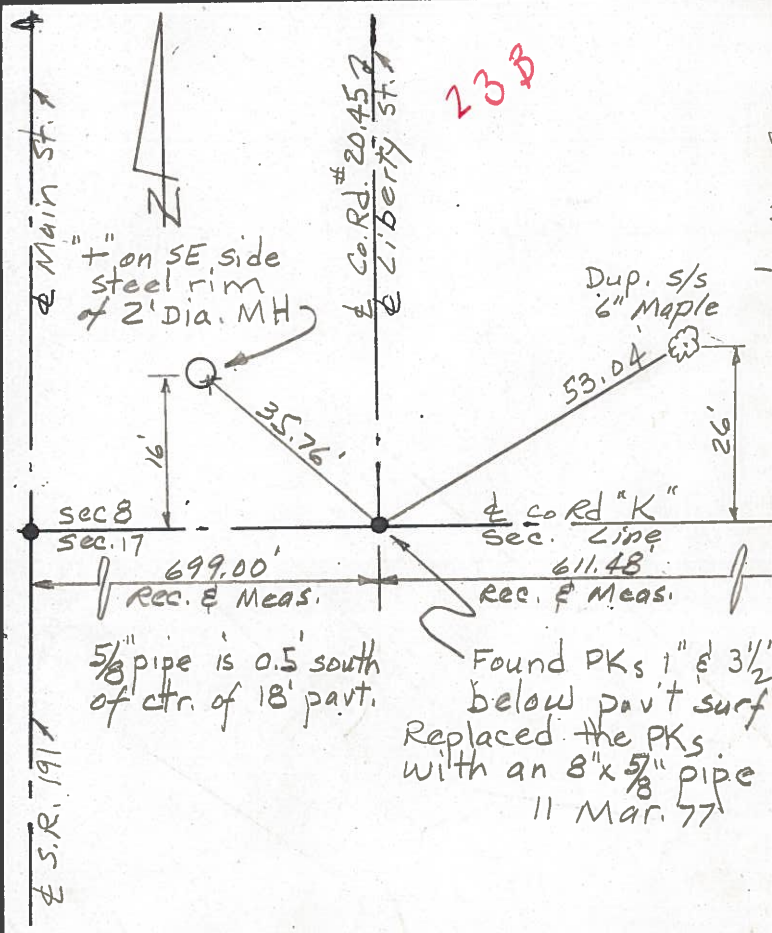 23B
℄ Main St.
℄ Co. Rd. #20.45
℄ Liberty St.
N
"+" on SE side
steel rim
of 2' Dia. MH
Dup. s/s
6" Maple
35.76'
53.04'
16'
26'
Sec 8
Sec. 17
℄ Co Rd "K"
Sec. Line
699.00'
Rec. & Meas.
611.48'
Rec. & Meas.
5/8" pipe is 0.5' south
of ctr. of 18' pavt.
Found PKs 1" & 3 1/2"
below pav't surf
Replaced the PKs
with an 8" x 5/8" pipe
11 Mar. 77
℄ S.R. 191